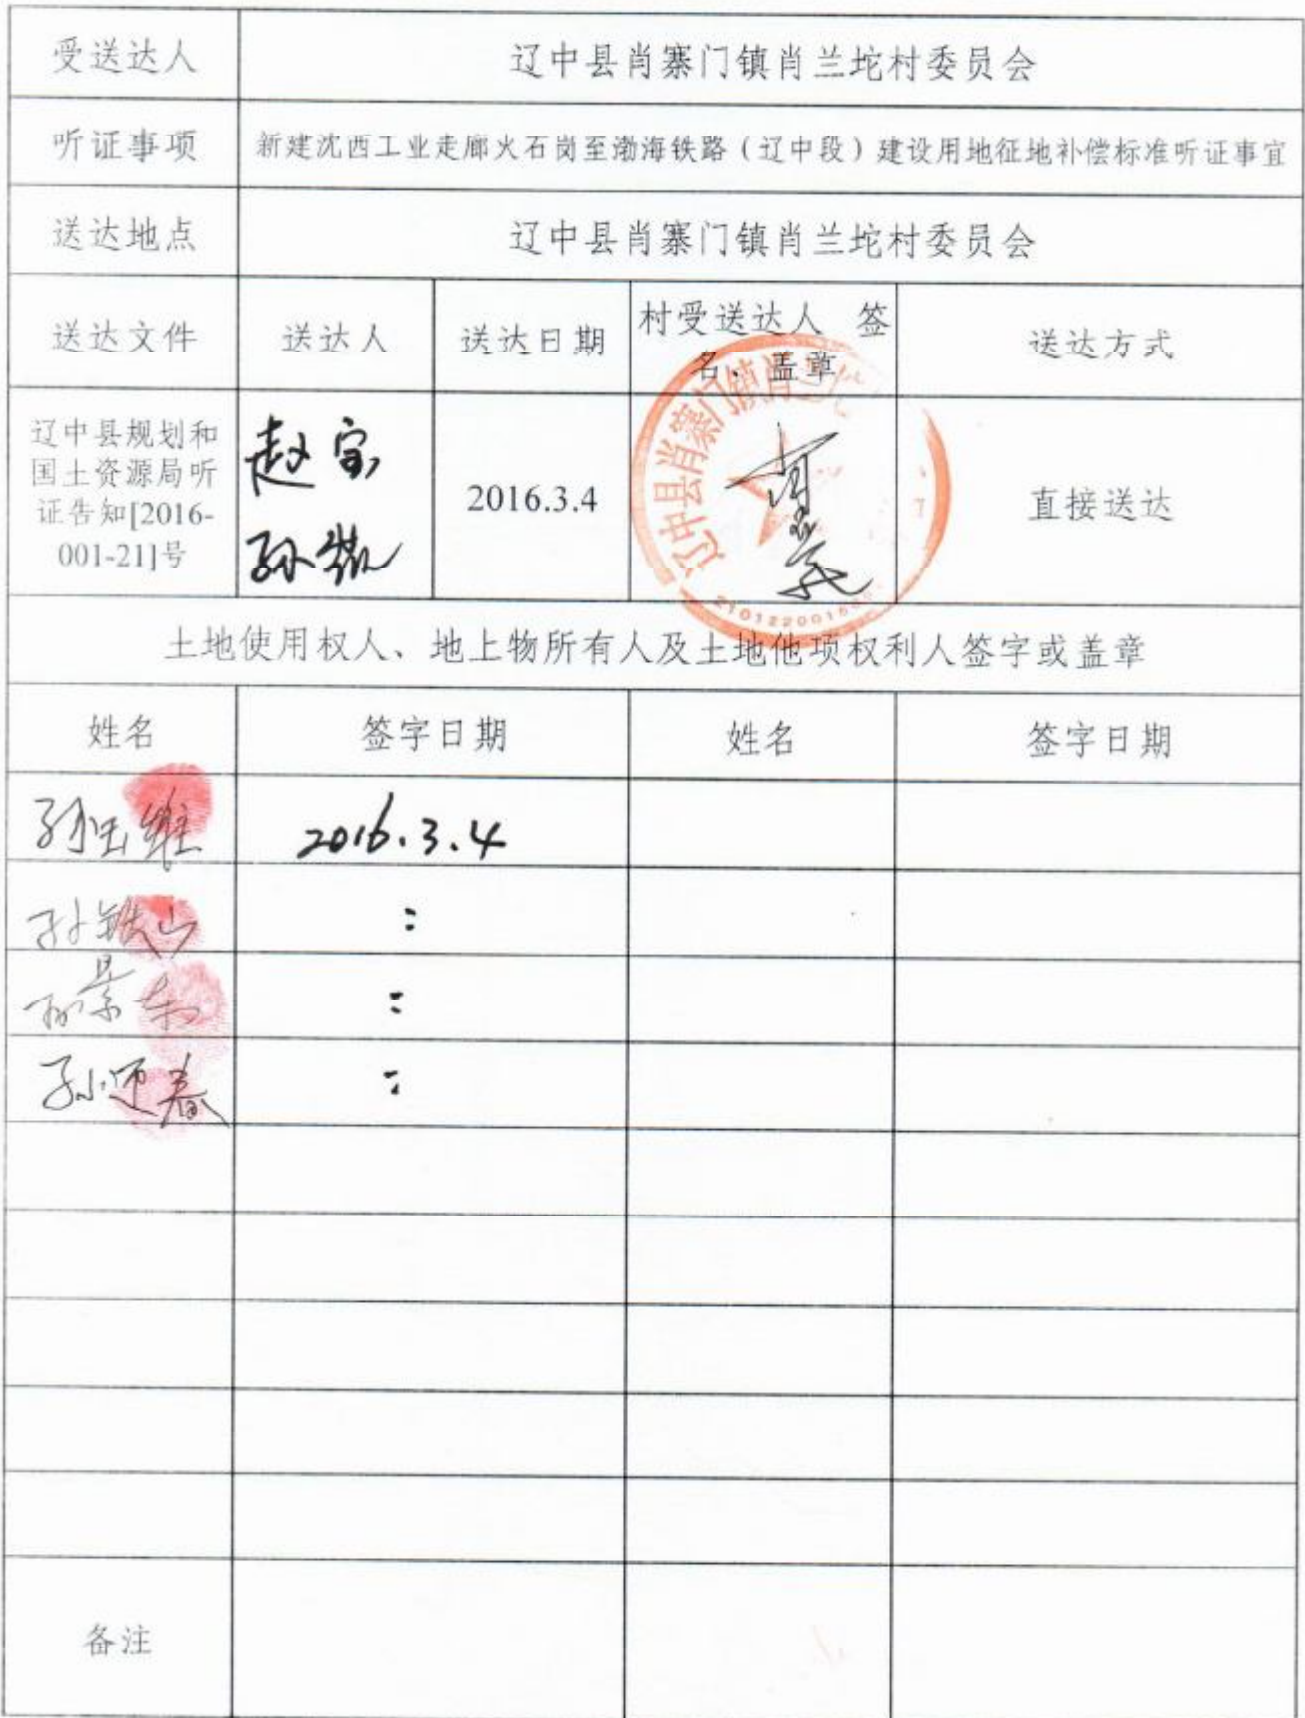 受送达人 辽中县肖寨门镇肖兰坨村委员会
听证事项 新建沈西工业走廊火石岗至渤海铁路（辽中段）建设用地征地补偿标准听证事宜
送达地点 辽中县肖寨门镇肖兰坨村委员会
送达文件 送达人 送达日期 村受送达人 签
名、盖章 送达方式
辽中县规划和
国土资源局听
证告知[2016-
001-21]号
赵宝
孙
2016.3.4
辽中县肖寨门镇肖
直接送达
土地使用权人、地上物所有人及土地他项权利人签字或盖章
姓名 签字日期 姓名 签字日期
孙 维 2016.3.4
孙铁山
孙景和
孙迎春
备注